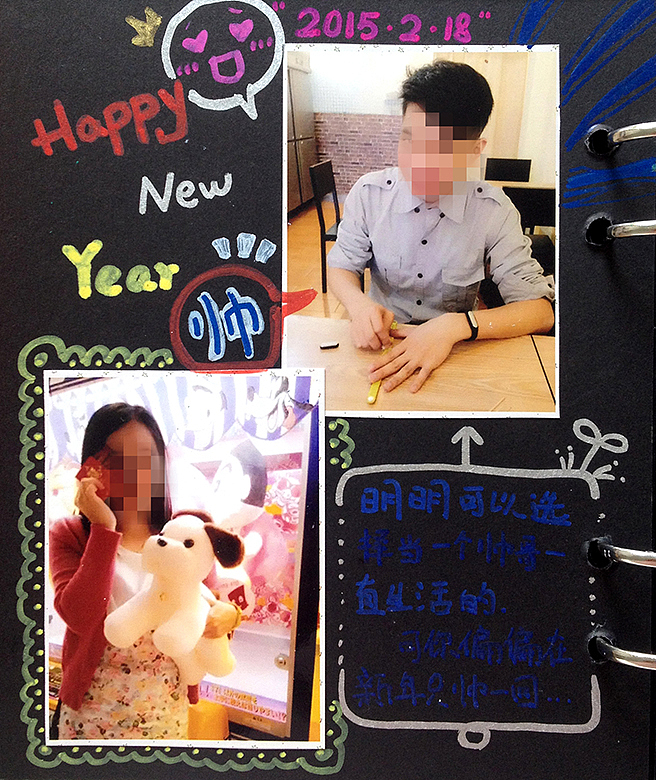 "2015.2.18"
Happy
New
Year
帅
明明可以选
择当一个帅哥一
直生活的、
可你偏偏在
新年只帅一回...